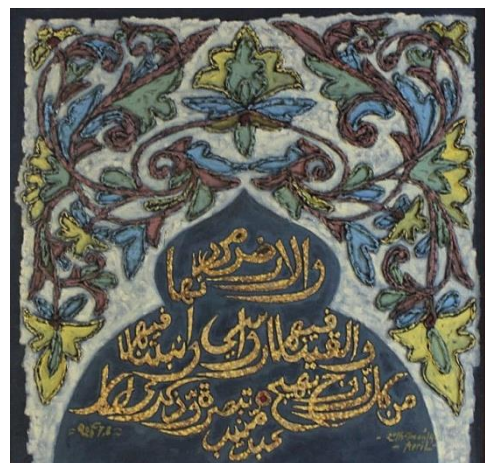 والارض مددنها
والقينا فيها رواسي وانبتنا فيها
من كل زوج بهيج تبصرة وذكرى لكل
عبد منيب
April